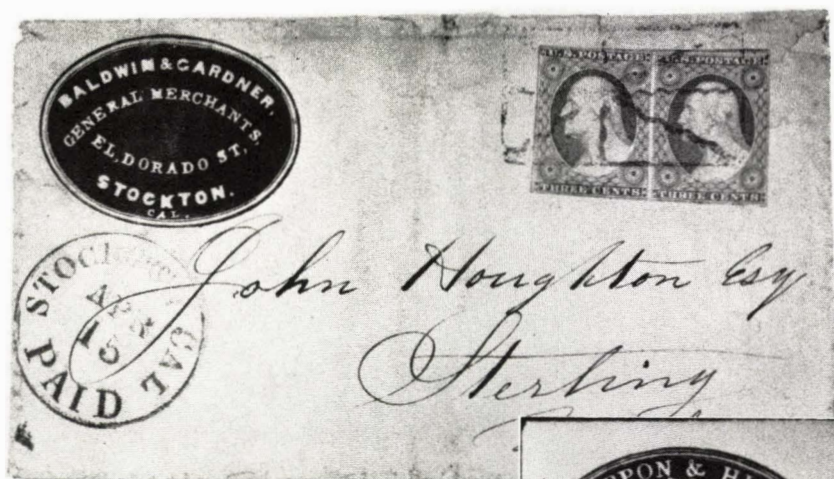 BALDWIN & GARDNER,
GENERAL MERCHANTS,
EL DORADO ST,
STOCKTON.
CAL.
U.S. POSTAGE
U.S. POSTAGE
THREE CENTS
THREE CENTS
STOCKTON CAL
APR
15
PAID
John Houghton Esq
Sterling
PON & H